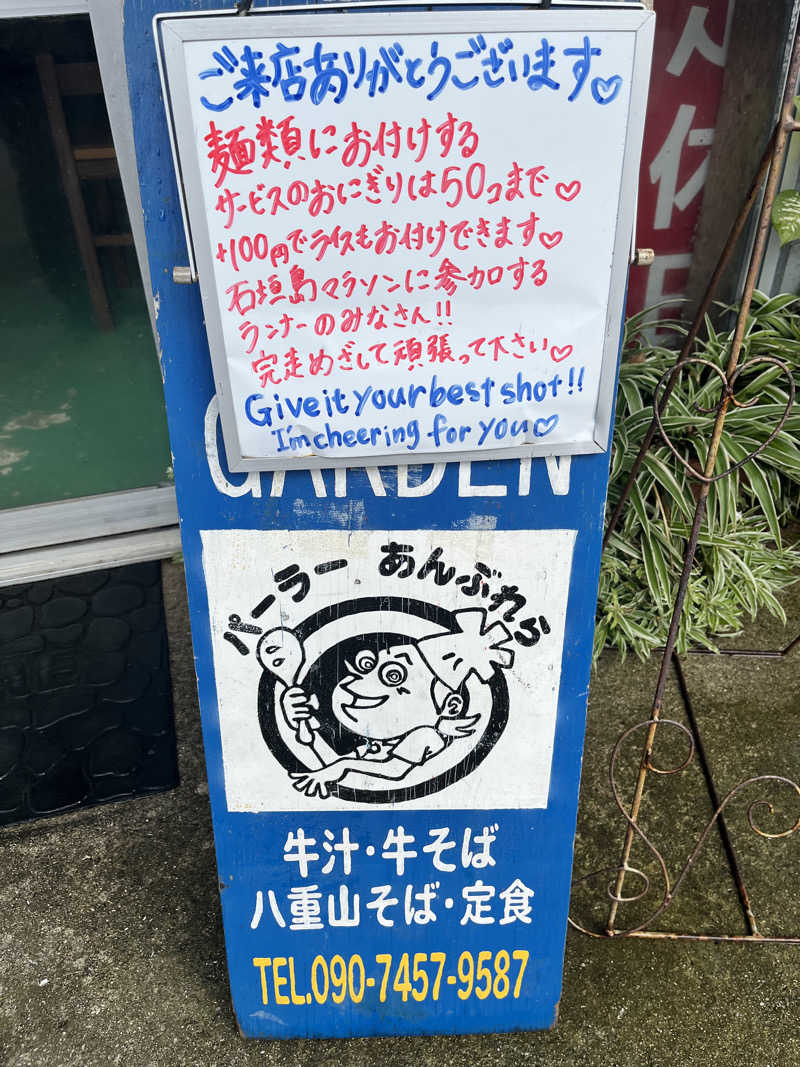 ご来店ありがとうございます♡
麺類にお付けする
サービスのおにぎりは50コまで♡
+100円でライスもお付けできます♡
石垣島マラソンに参加する
ランナーのみなさん!!
完走めざして頑張って下さい♡
Give it your best shot!!
I'm cheering for you♡
GARDEN
パーラー あんぶれら
牛汁・牛そば
八重山そば・定食
TEL.090-7457-9587